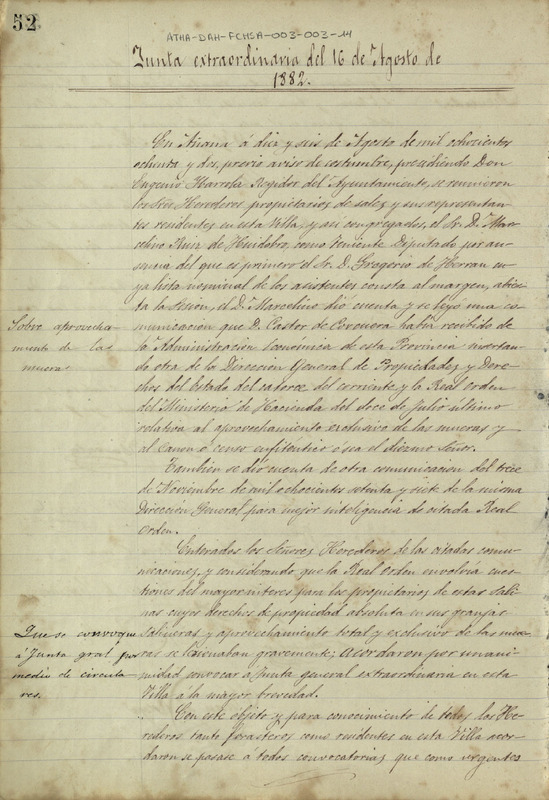 52
ATHA-DAH-FCMSA-003-003-14
Junta extraordinaria del 16 de Agosto de
1882.
En Añana á diez y seis de Agosto de mil ochocientos
ochenta y dos, previo aviso de costumbre, presidiendo Don
Eugenio Ibarrola Regidor del Ayuntamiento, se reunieron
los Sres. Herederos propietarios de salez y sus representan
tes residentes en esta Villa, y asi congregados, el Sr. D. Mar
celino Ruiz de Huidobro, como Teniente Diputado por au
sencia del que es primero el Sr. D. Gregorio de Herran cu
ya lista nominal de los asistentes consta al margen, abier
ta la sesion, el D. Marcelino dió cuenta y se leyó una co
Sobre aprovecha
miento de las
mueras
municacion que D. Castor de Corcuera habia recibido de
la Administracion Económica de esta Provincia insertan
do otra de la Direccion General de Propiedades y Dere
chos del Estado del catorce del corriente, y la Real Orden
del Ministerio de Hacienda del doce de Julio último
relativa al aprovechamiento exclusivo de las mueras y
al canon ó censo enfitéutico ó sea el diezmo Señor.
Tambien se dio cuenta de otra comunicacion del trece
de Noviembre de mil ochocientos setenta y siete de la misma
Direccion General para mejor inteligencia de citada Real
Orden.
Enterados los Señores Herederos de las citadas comu
nicaciones, y considerando que la Real Orden envolvia cues
tiones del mayor interes para los propietarios de estas Sali
nas cuyos derechos de propiedad absoluta en sus granjas
Que se convoque
á Junta gral por
medio de circula
res.
Salineras y aprovechamiento total y exclusivo de las mue
ras se lesionaban gravemente; Acordaron por unani
midad convocar á Junta general extraordinaria en esta
Villa a la mayor brevedad.
Con este objeto y para conocimiento de todos los He
rederos tanto forasteros como residentes en esta Villa acor
daron se pasase á todos convocatorias que como urgentes